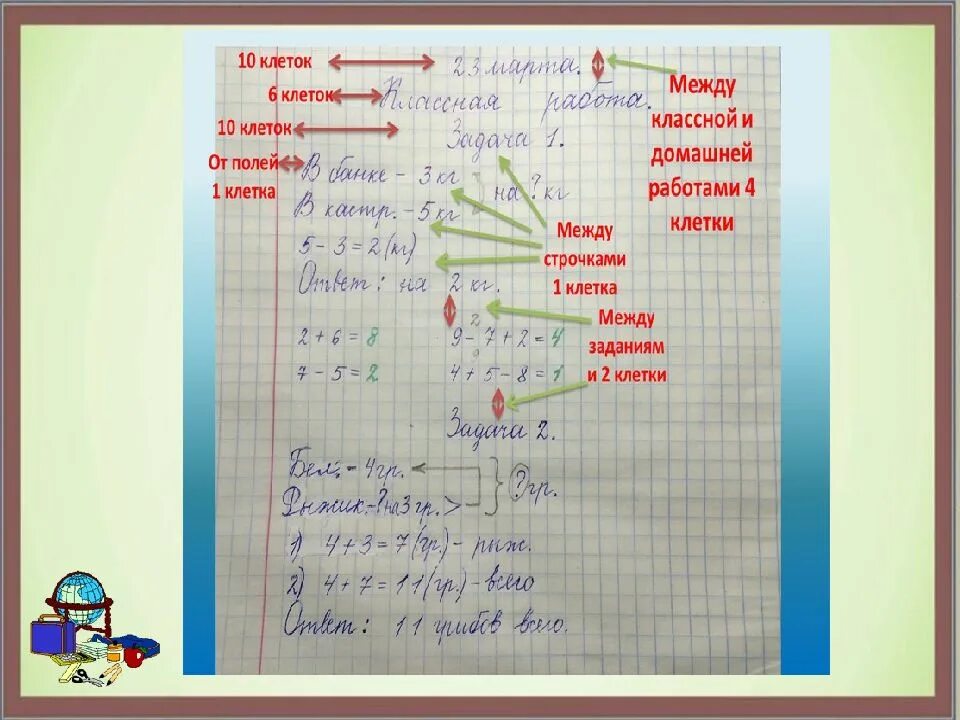 10 клеток
23 марта.
6 клеток
Классная работа.
Между классной и домашней работами 4 клетки
10 клеток
Задача 1.
От полей 1 клетка
В банке - 3 кг
на ? кг
В кастр. - 5 кг
5 - 3 = 2 (кг)
Между строчками 1 клетка
Ответ: на 2 кг.
Между заданиям и 2 клетки
2
2 + 6 = 8
9 - 7 + 2 = 4
9
7 - 5 = 2
4 + 5 - 8 = 1
Задача 2.
Бел. - 4 гр.
? гр.
Рыжик. - ? на 3 гр. >
1) 4 + 3 = 7 (гр.) - рыж.
2) 4 + 7 = 11 (гр.) - всего
Ответ: 11 грибов всего.